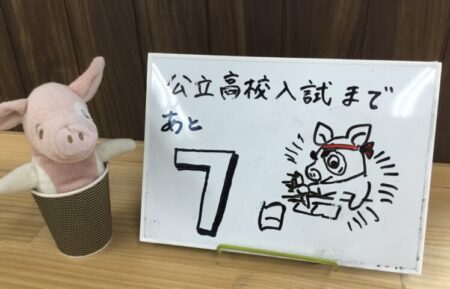 公立高校入試まで
あと
7日